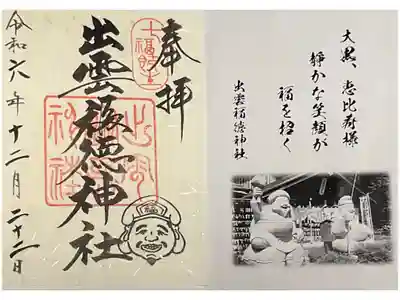 大黒、恵比寿様
静かな笑顔が
福を招く
出雲福徳神社
奉拝
出雲福徳神社
令和六年十二月二十二日